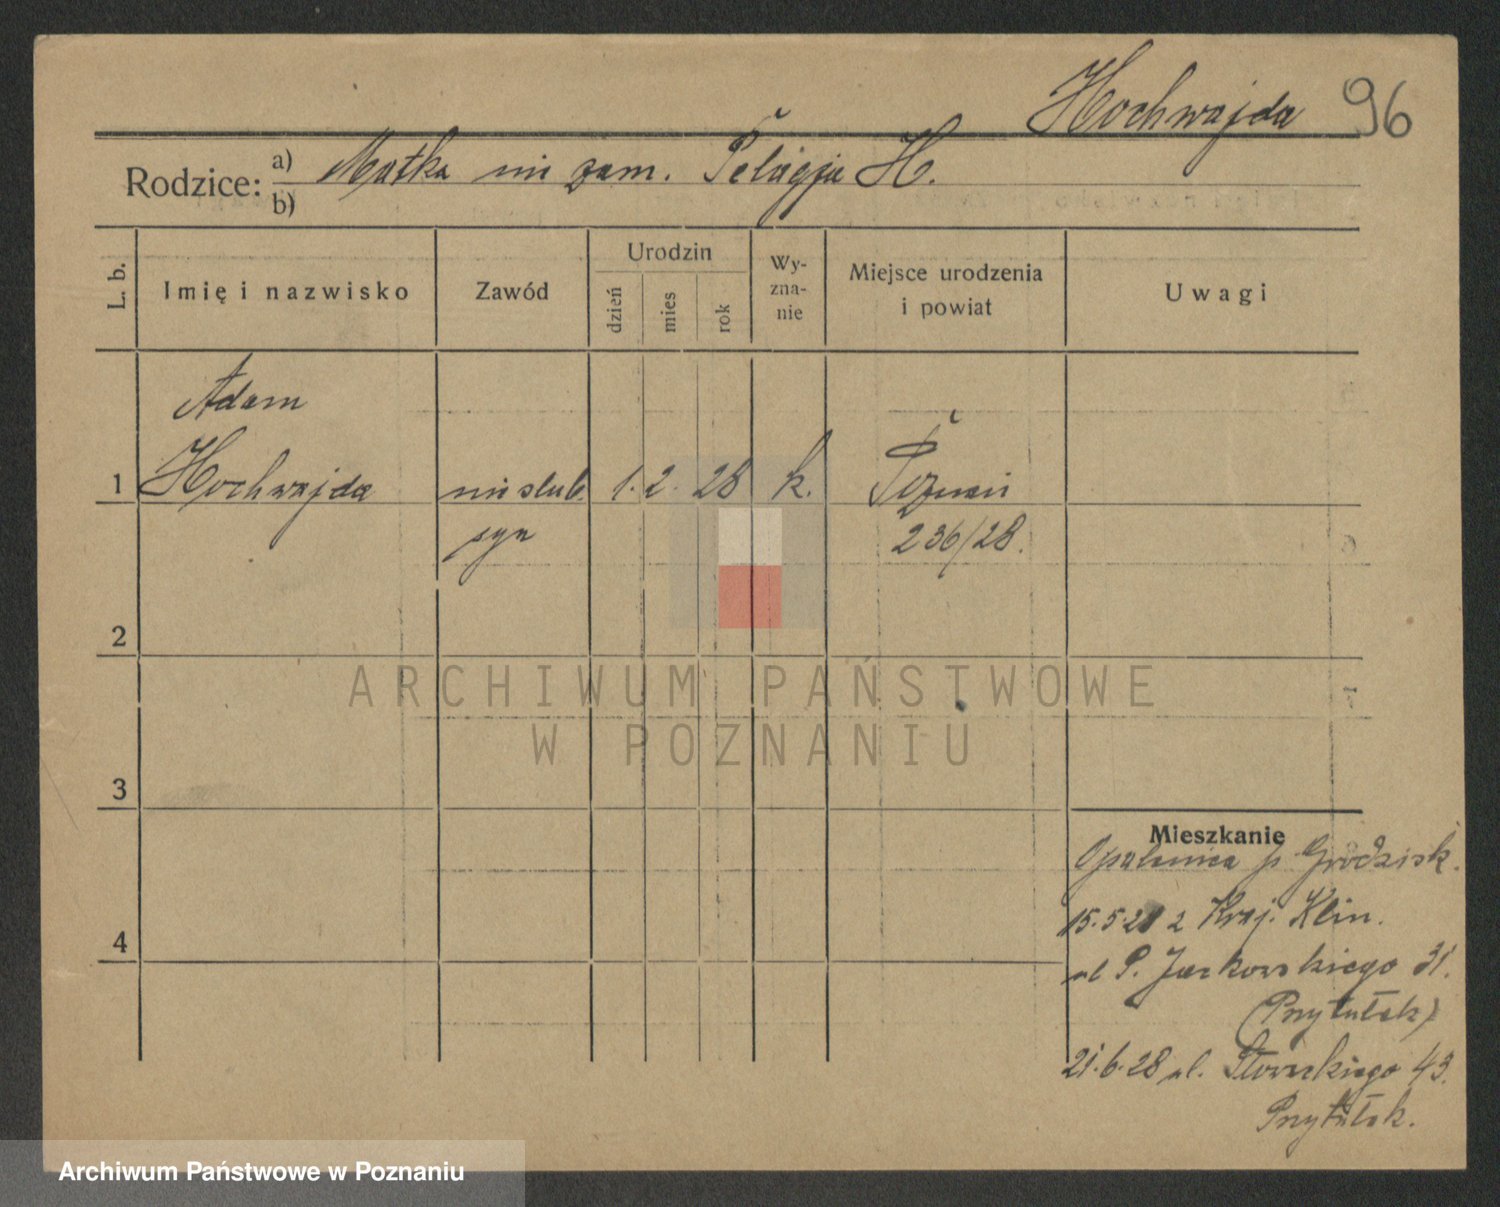 Hochwajda 96
Rodzice: a) Matka nie zam. Pelagja H.
b)
L. b.
Imię i nazwisko
Zawód
Urodzin
dzień
mies
rok
Wy-
zna-
nie
Miejsce urodzenia
i powiat
Uwagi
Adam
1 Hochwajda nieślub. 1. 2. 28 k. Poznań
syn 236/28.
2
3
4
Mieszkanie
Opalenica p. Grodzisk.
15.5.28 z Kraj. Klin.
ul P. Jackowskiego 31.
(Przytułek)
21.6.28 ul. Słowackiego 43.
Przytułek.
ARCHIWUM PAŃSTWOWE
W POZNANIU
Archiwum Państwowe w Poznaniu